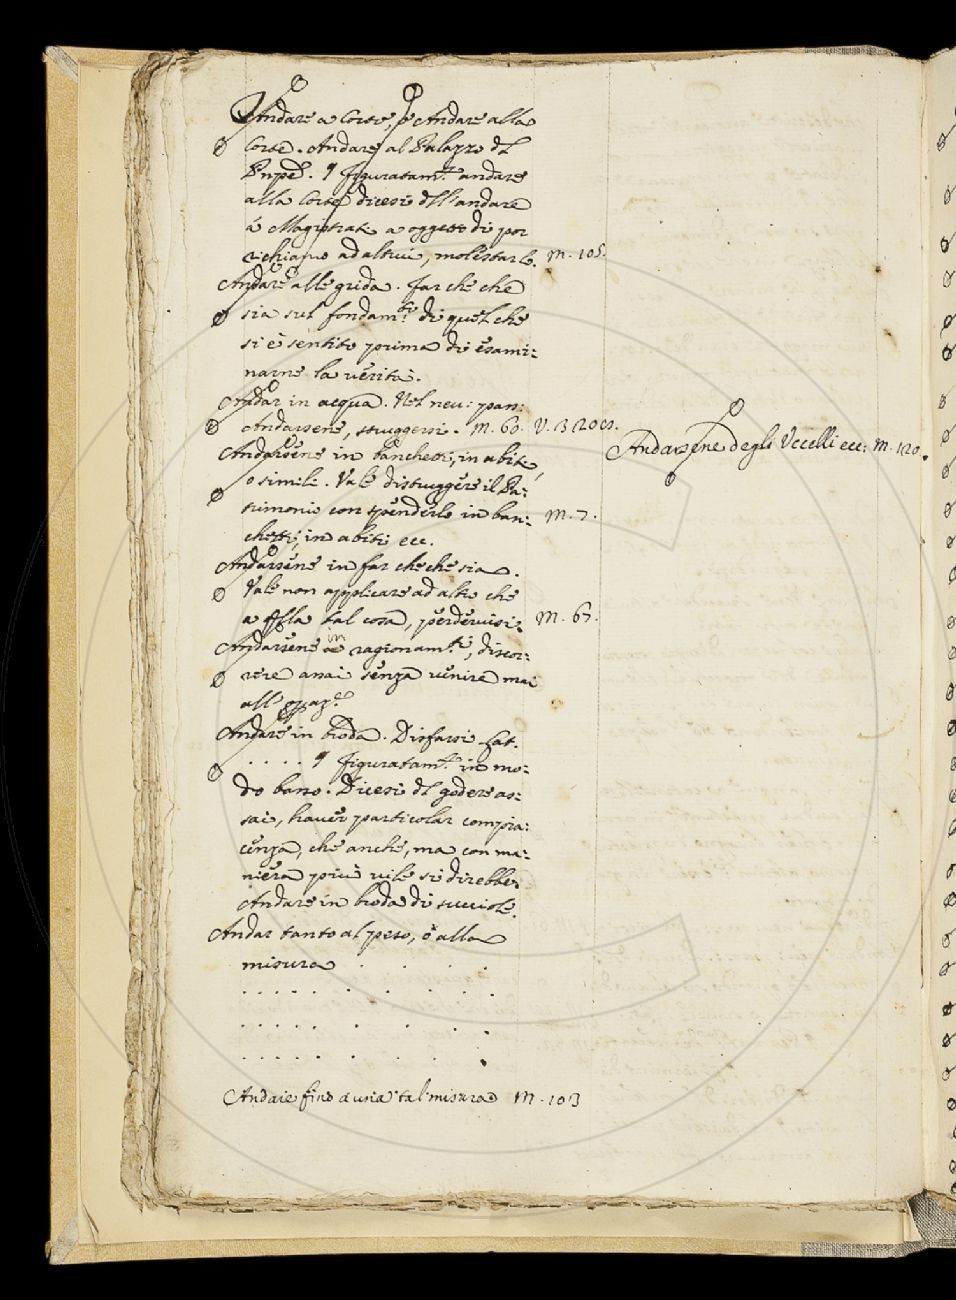 Andare a Corte, e Andare alla
Corte. Andare al Palazzo dl
Pnpe. figuratam.te andare
alla Corte dicesi dll'andare
á Magistrati a oggetto di por
richiamo ad altrui, molestarlo. M. 105.
Andare alle grida. far che che
sia sul fondam.to di quel che
si è sentito prima di esami:
narne la verità.
Andar in acqua. Nel neu: pass:
Andarsene, struggersi. M. 60. V.
Andarsene in banchetti, in abiti,
o simili. Vale distruggere il Pa:
trimonio con spenderlo in ban: M. 7.
chetti, in abiti ecc.
Andarsene in far che che sia.
Vale non applicare ad altro che
a qlla tal cosa, perdervisi. M. 67.
Andarsene in ragionam.ti, discor:
rere assai senza venire mai
all'
Andare in broda. Disfarsi
. . . . figuratam.te in mo:
do basso. Dicesi dl godere as:
sai, haver particolar compia:
cenza, che anche, ma con ma:
niera più vile si direbbe
Andare in broda di succiole.
Andar tanto al peso, ò alla
misura . . . .
. . . . . . . . .
. . . . . . . . .
. . . . . . . . .
Andare fino a una tal misura M. 103
Andarsene degli Uccelli ecc: M. 120.